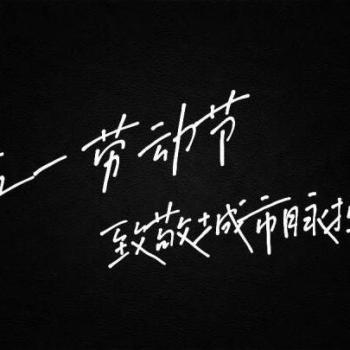 五一劳动节
致敬城市脉